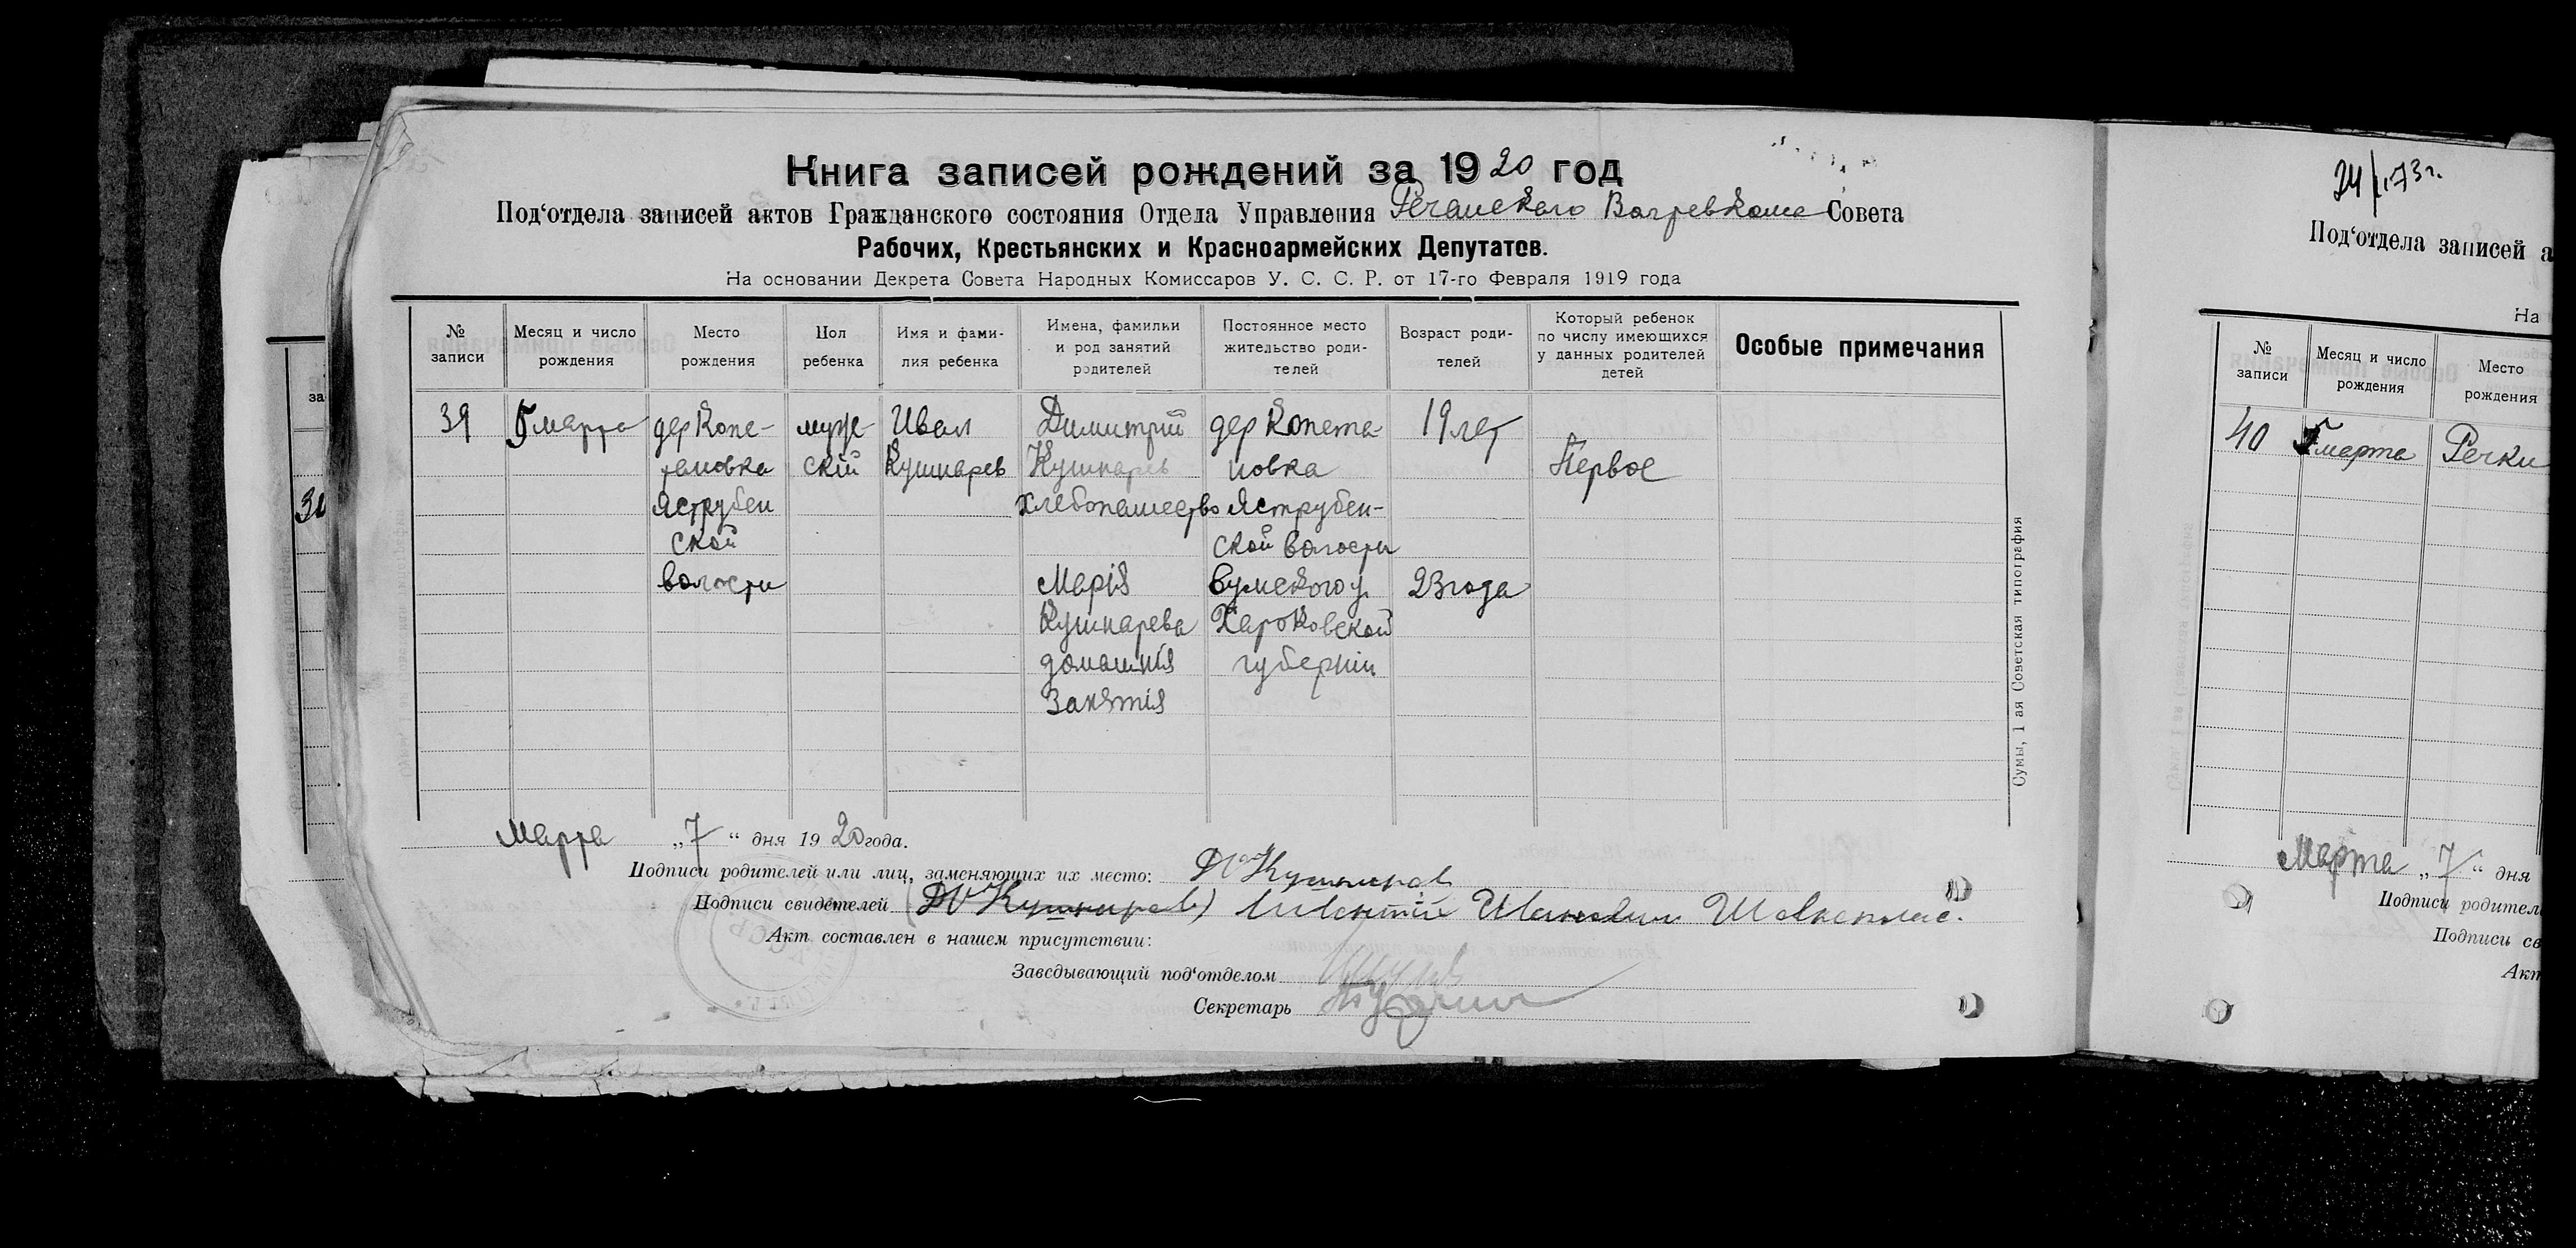 Книга записей рождений за 1920 год
Под‘отдела записей актов Гражданского состояния Отдела Управления Речанскаго Волревкома Совета
Рабочих, Крестьянских и Красноармейских Депутатов.
На основании Декрета Совета Народных Комиссаров У. С. С. Р. от 17-го Февраля 1919 года
№ записи
Месяц и число рождения
Место рождения
Пол ребенка
Имя и фамилия ребенка
Имена, фамилии и род занятий родителей
Постоянное место жительство родителей
Возраст родителей
Который ребенок по числу имеющихся у данных родителей детей
Особые примечания
39
5 марта
дер Копе-
тановка
Яструбен
ской
волости
муже-
скій
Иван
Кушнарев
Димитрий
Кушнарев
хлебопашество
Марія
Кушнарева
домашнія
занятія
дер Копета-
новка
Яструбен-
ской волости
Сумского у.
Харьковской
губерніи
19 лет
23 года
Первое
Сумы, 1 ая Советская типография
Марта „7“ дня 1920 года.
Подписи родителей или лиц, заменяющих их место: Кушнарев
Подписи свидетелей (Кушнарев)
Акт составлен в нашем присутствии:
Заведывающий под‘отделом
Секретарь
за
Под‘отдела записей а
На
№ записи
Месяц и число рождения
Место рождения
40
марта
Речки
Марта „7“ дня
Подписи родител
Подписи св
Акт